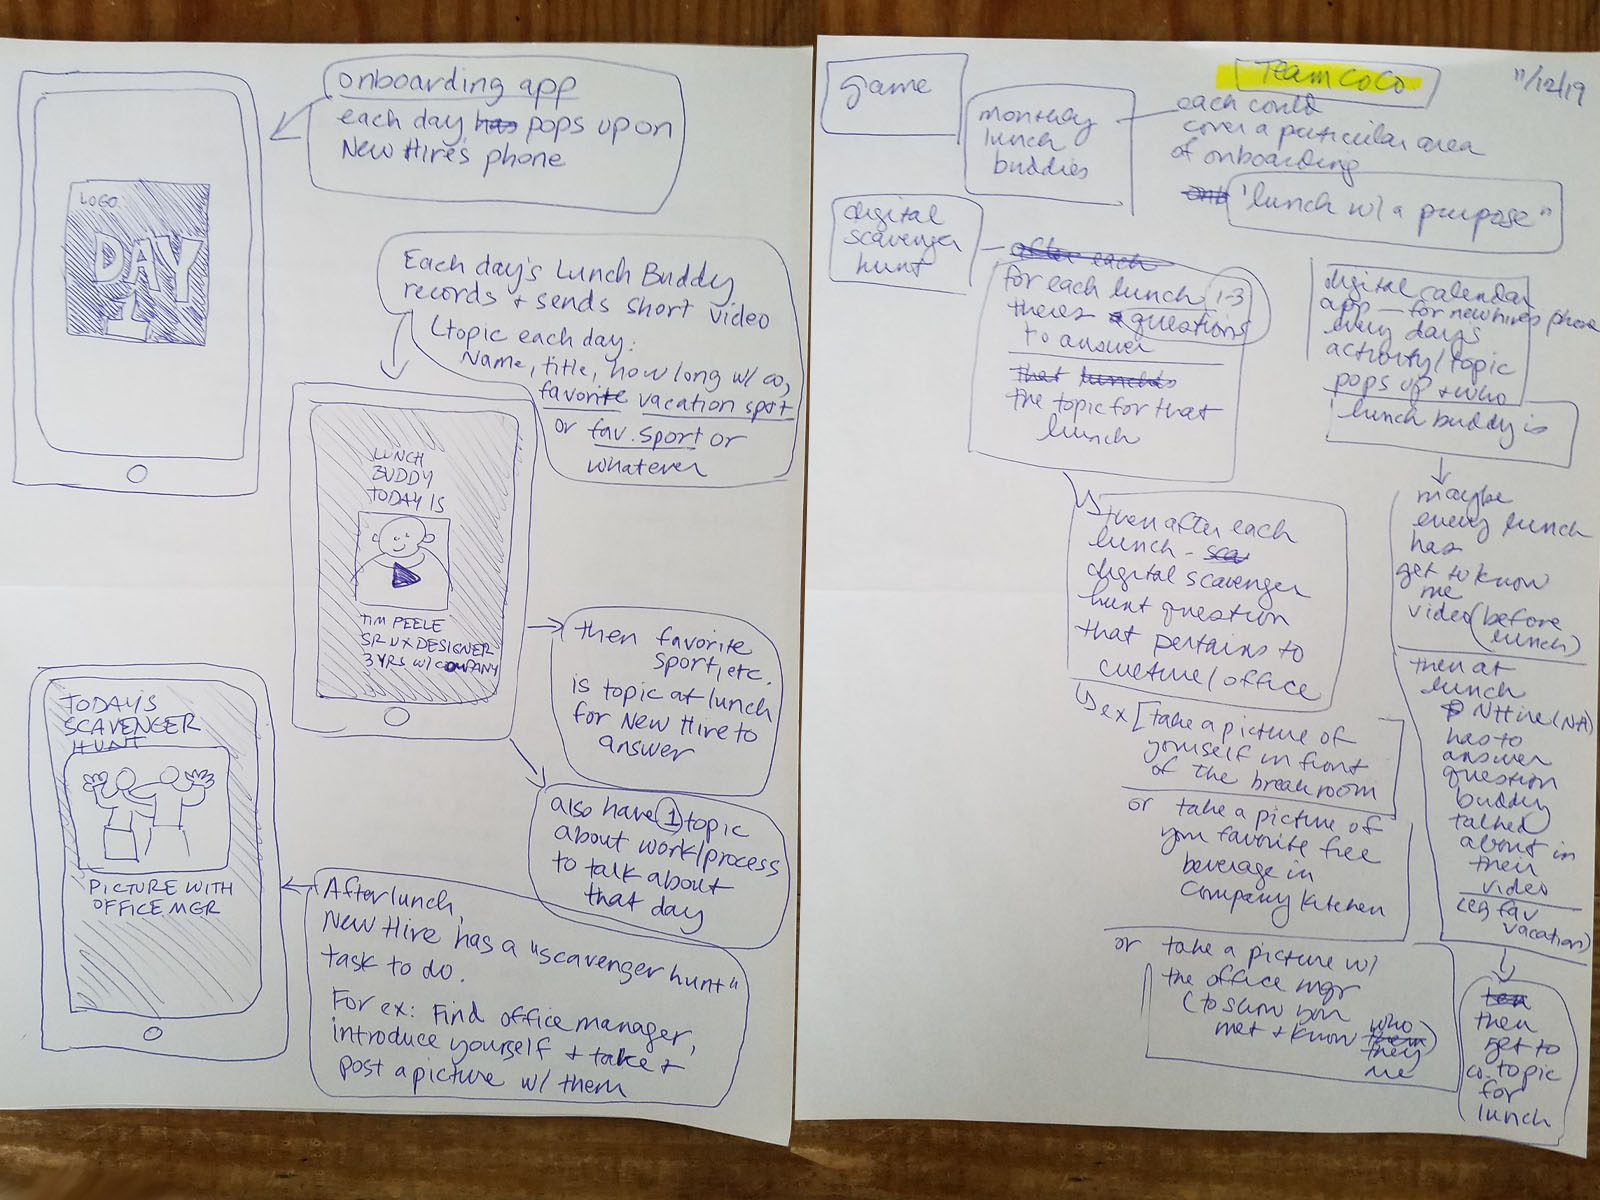 onboarding app
each day has pops up on
New Hire's phone
LOGO
DAY
1
Each day's Lunch Buddy
records + sends short video
topic each day:
Name, title, how long w/ co,
favorite vacation spot
or fav. sport or
whatever
LUNCH
BUDDY
TODAY IS
TIM PEELE
SR UX DESIGNER
3 YRS W/ COMPANY
then favorite
sport, etc.
is topic at lunch
for New Hire to
answer
also have 1 topic
about work/process
to talk about
that day
TODAY'S
SCAVENGER
HUNT
PICTURE WITH
OFFICE MGR
After lunch,
New Hire has a "scavenger hunt"
task to do.
For ex: Find office manager,
introduce yourself + take +
post a picture w/ them
game
TEAM COCO
11/12/19
lunch
buddies
each could
cover a particular area
of onboarding
"lunch w/ a purpose"
digital
scavenger
hunt
after each
for each lunch 1-3
theres questions
to answer
that
the topic for that
lunch
then after each
lunch -
digital scavenger
hunt question
that pertains to
culture/office
ex [take a picture of
yourself in front
of the breakroom
or take a picture of
your favorite free
beverage in
company kitchen
or take a picture w/
the office mgr
(to show you
met + know who
they
digital calendar
app - for new hires phone
every day's
activity/topic
pops up + who
lunch buddy is
maybe
every lunch
has
get to know
me
video (before
lunch)
then at
lunch
NHire
has to
answer
question
buddy
talked
about in
their
video
(eg fav
vacation)
then
get to
co. topic
for
lunch